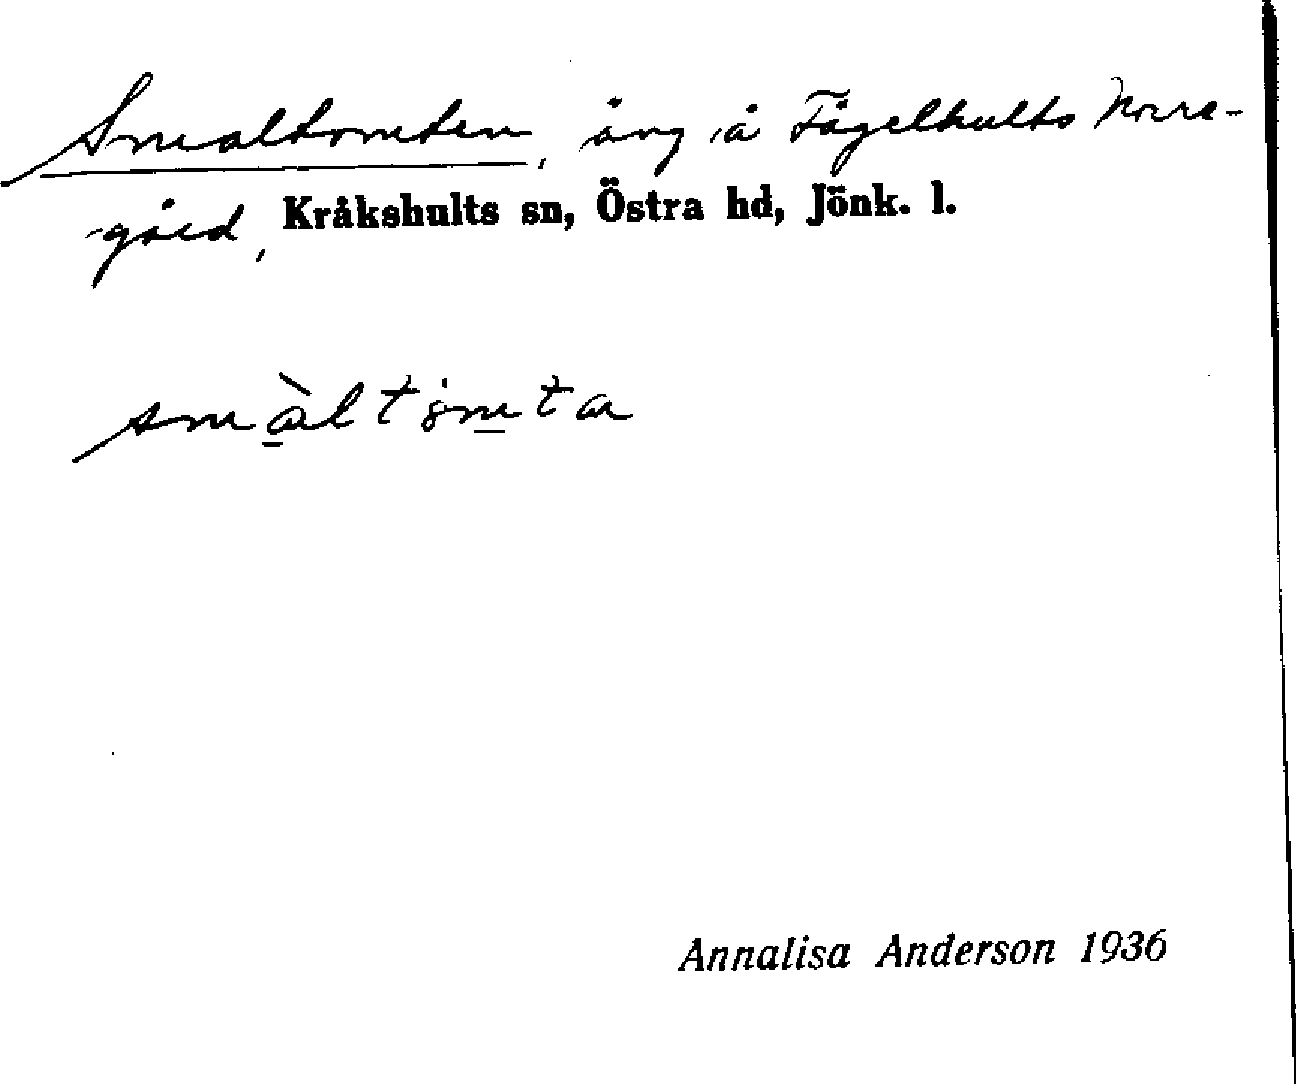 Smaltomten, äng å Fågelhults Norre-
gård, Kråkshults sn, Östra hd, Jönk. l.
Annalisa Anderson 1936